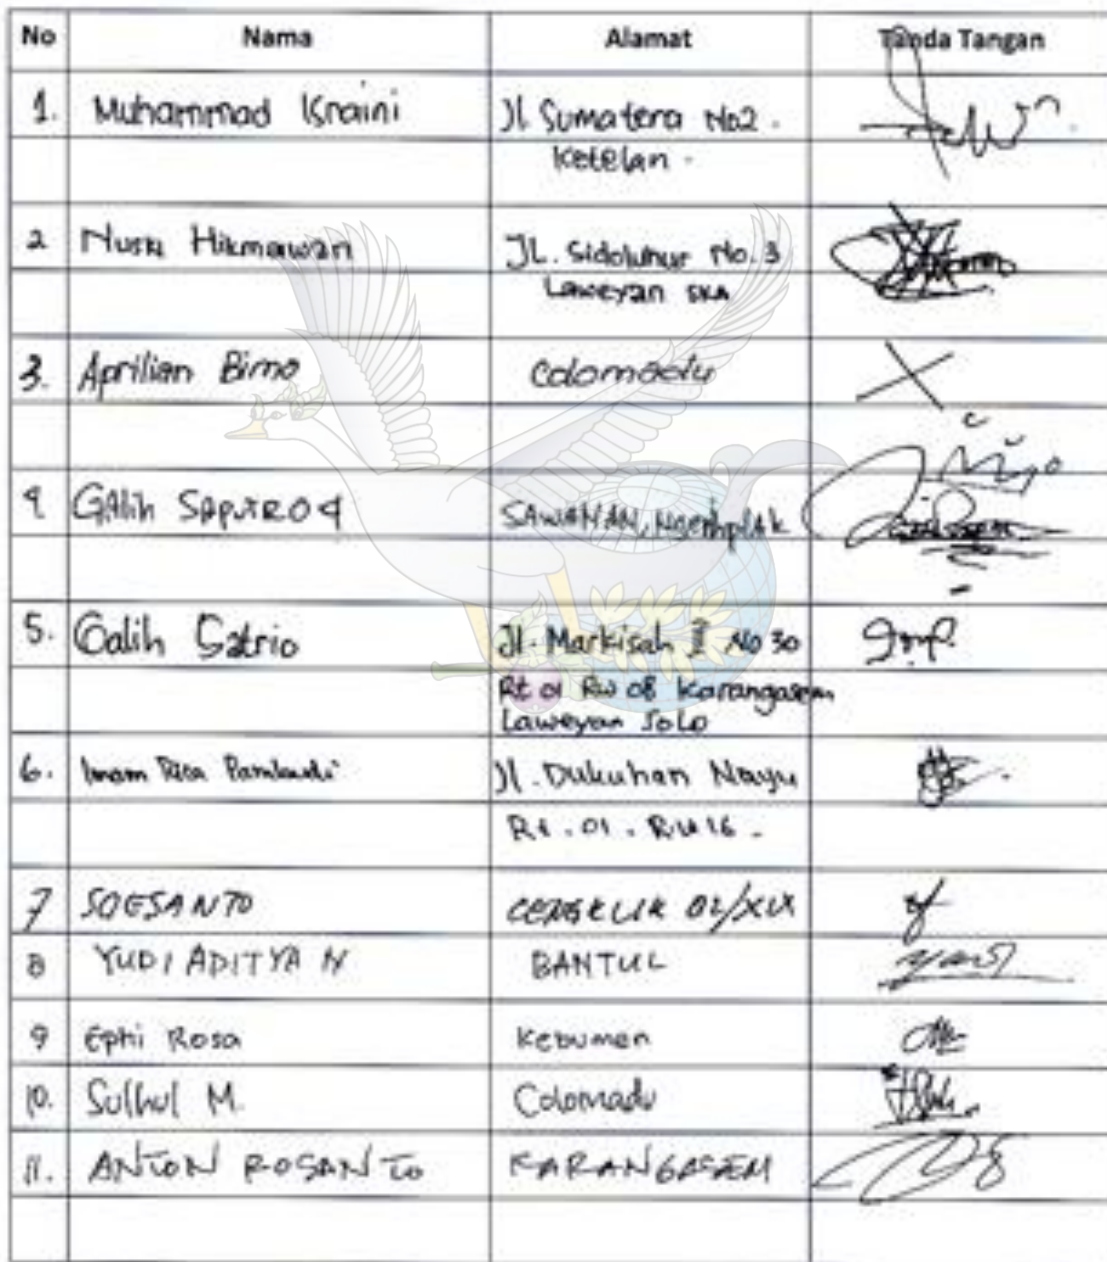 No Nama Alamat Tanda Tangan
1. Muhammad Isnaini Jl. Sumatera No2.
Ketelan.
2 Hikmawan JL. Sidoluhur No.3
Laweyan SKA
3. Aprilian Bimo Colomadu
4 Galih SAWAHAN, Ngemplak
5. Galih Satrio Jl. Markisah II No 30
Rt 01 Rw 08 Karangasem
Laweyan Solo
6. Imam Jl. Dukuhan Nayu
Rt. 01. RW 16.
7 SOESANTO CENGKLIK 02/XIX
8 YUDI ADITYA N BANTUL
9 Ephi Rosa Kebumen
10. Sulhul M. Colomadu
11. ANTON ROSANTO KARANGASEM